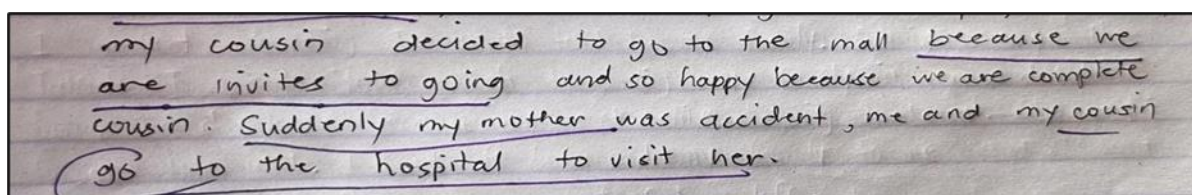 my cousin decided to go to the mall because we
are invites to going and so happy because we are complete
cousin. Suddenly my mother was accident, me and my cousin
go to the hospital to visit her.